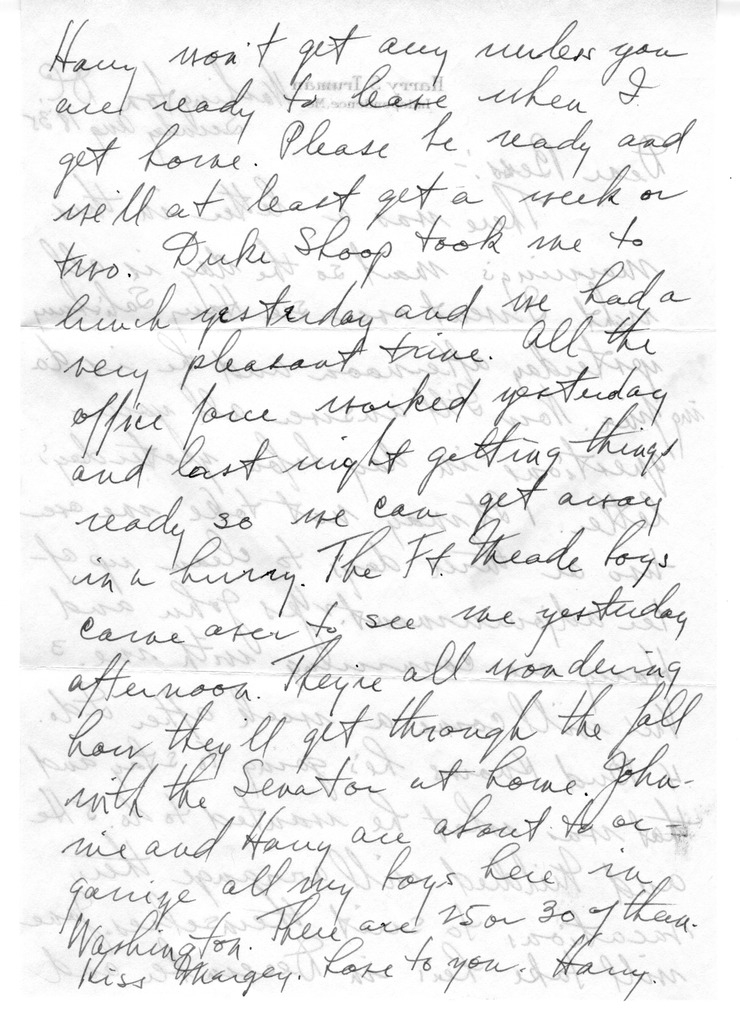 Harry won't get any unless you
are ready to leave when I
get home. Please be ready and
we'll at least get a week or
two. Duke Shoop took me to
lunch yesterday and we had a
very pleasant time. All the
office force worked yesterday
and last night getting things
ready so we can get away
in a hurry. The Ft. Meade boys
came over to see me yesterday
afternoon. They're all wondering
how they'll get through the fall
with the Senator at home. John-
nie and Harry are about to or-
ganize all my boys here in
Washington. There are 25 or 30 of them.
Kiss Margey. Love to you. Harry.